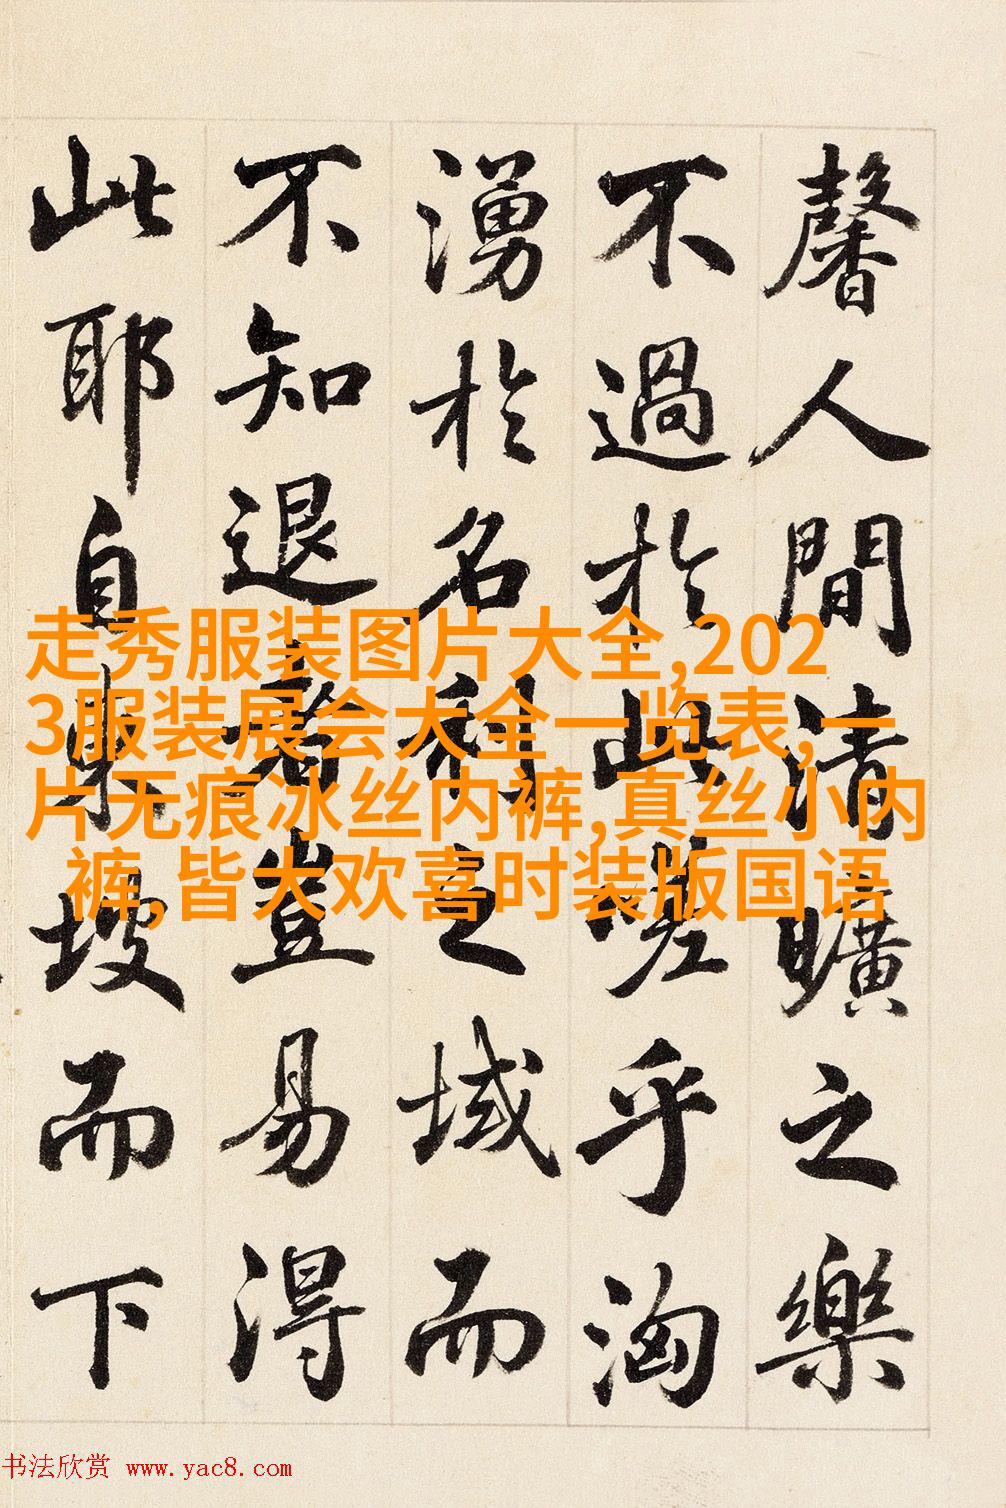 馨人間清曠之樂
不過於此嗟乎洶
湧於名利之域而
不知退者豈易得
此耶自東坡而下
走秀服装图片大全,202
3服装展会大全一览表,一
片无痕冰丝内裤,真丝小内
裤,皆大欢喜时装版国语
书法欣赏 www.yac8.com